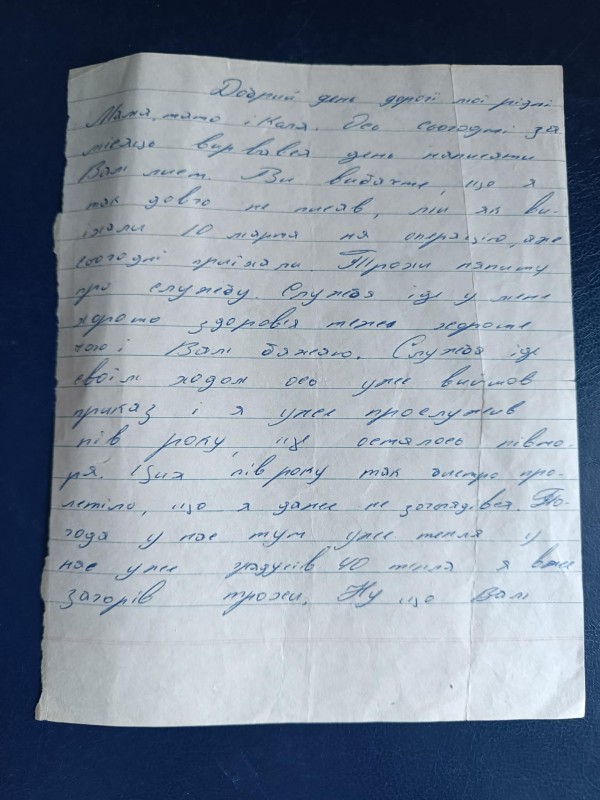 Добрий день дорогі мої різні
Мама, тато і Коля. Ось сьогодні за
місяць вирвався день написати
Вам лист. Ви вибачте, що я
так довго не писав, ми як ви-
їхали 10 марта на операцію, аже
сьогодні приїхали. Трохи напишу
про службу. Служба іде у мене
хорошо здоров'я теже хороше
чого і Вам бажаю. Служба іде
своїм ходом ось уже вийшов
приказ і я уже прослужив
пів року, ще осталось півто-
ря. Ция пів року так бистро про-
летіло, що я даже не заглядівся. По-
года у нас тут уже тепла у
нас уже градусів 40 тепла я вже
загорів трохи. Ну що Вам